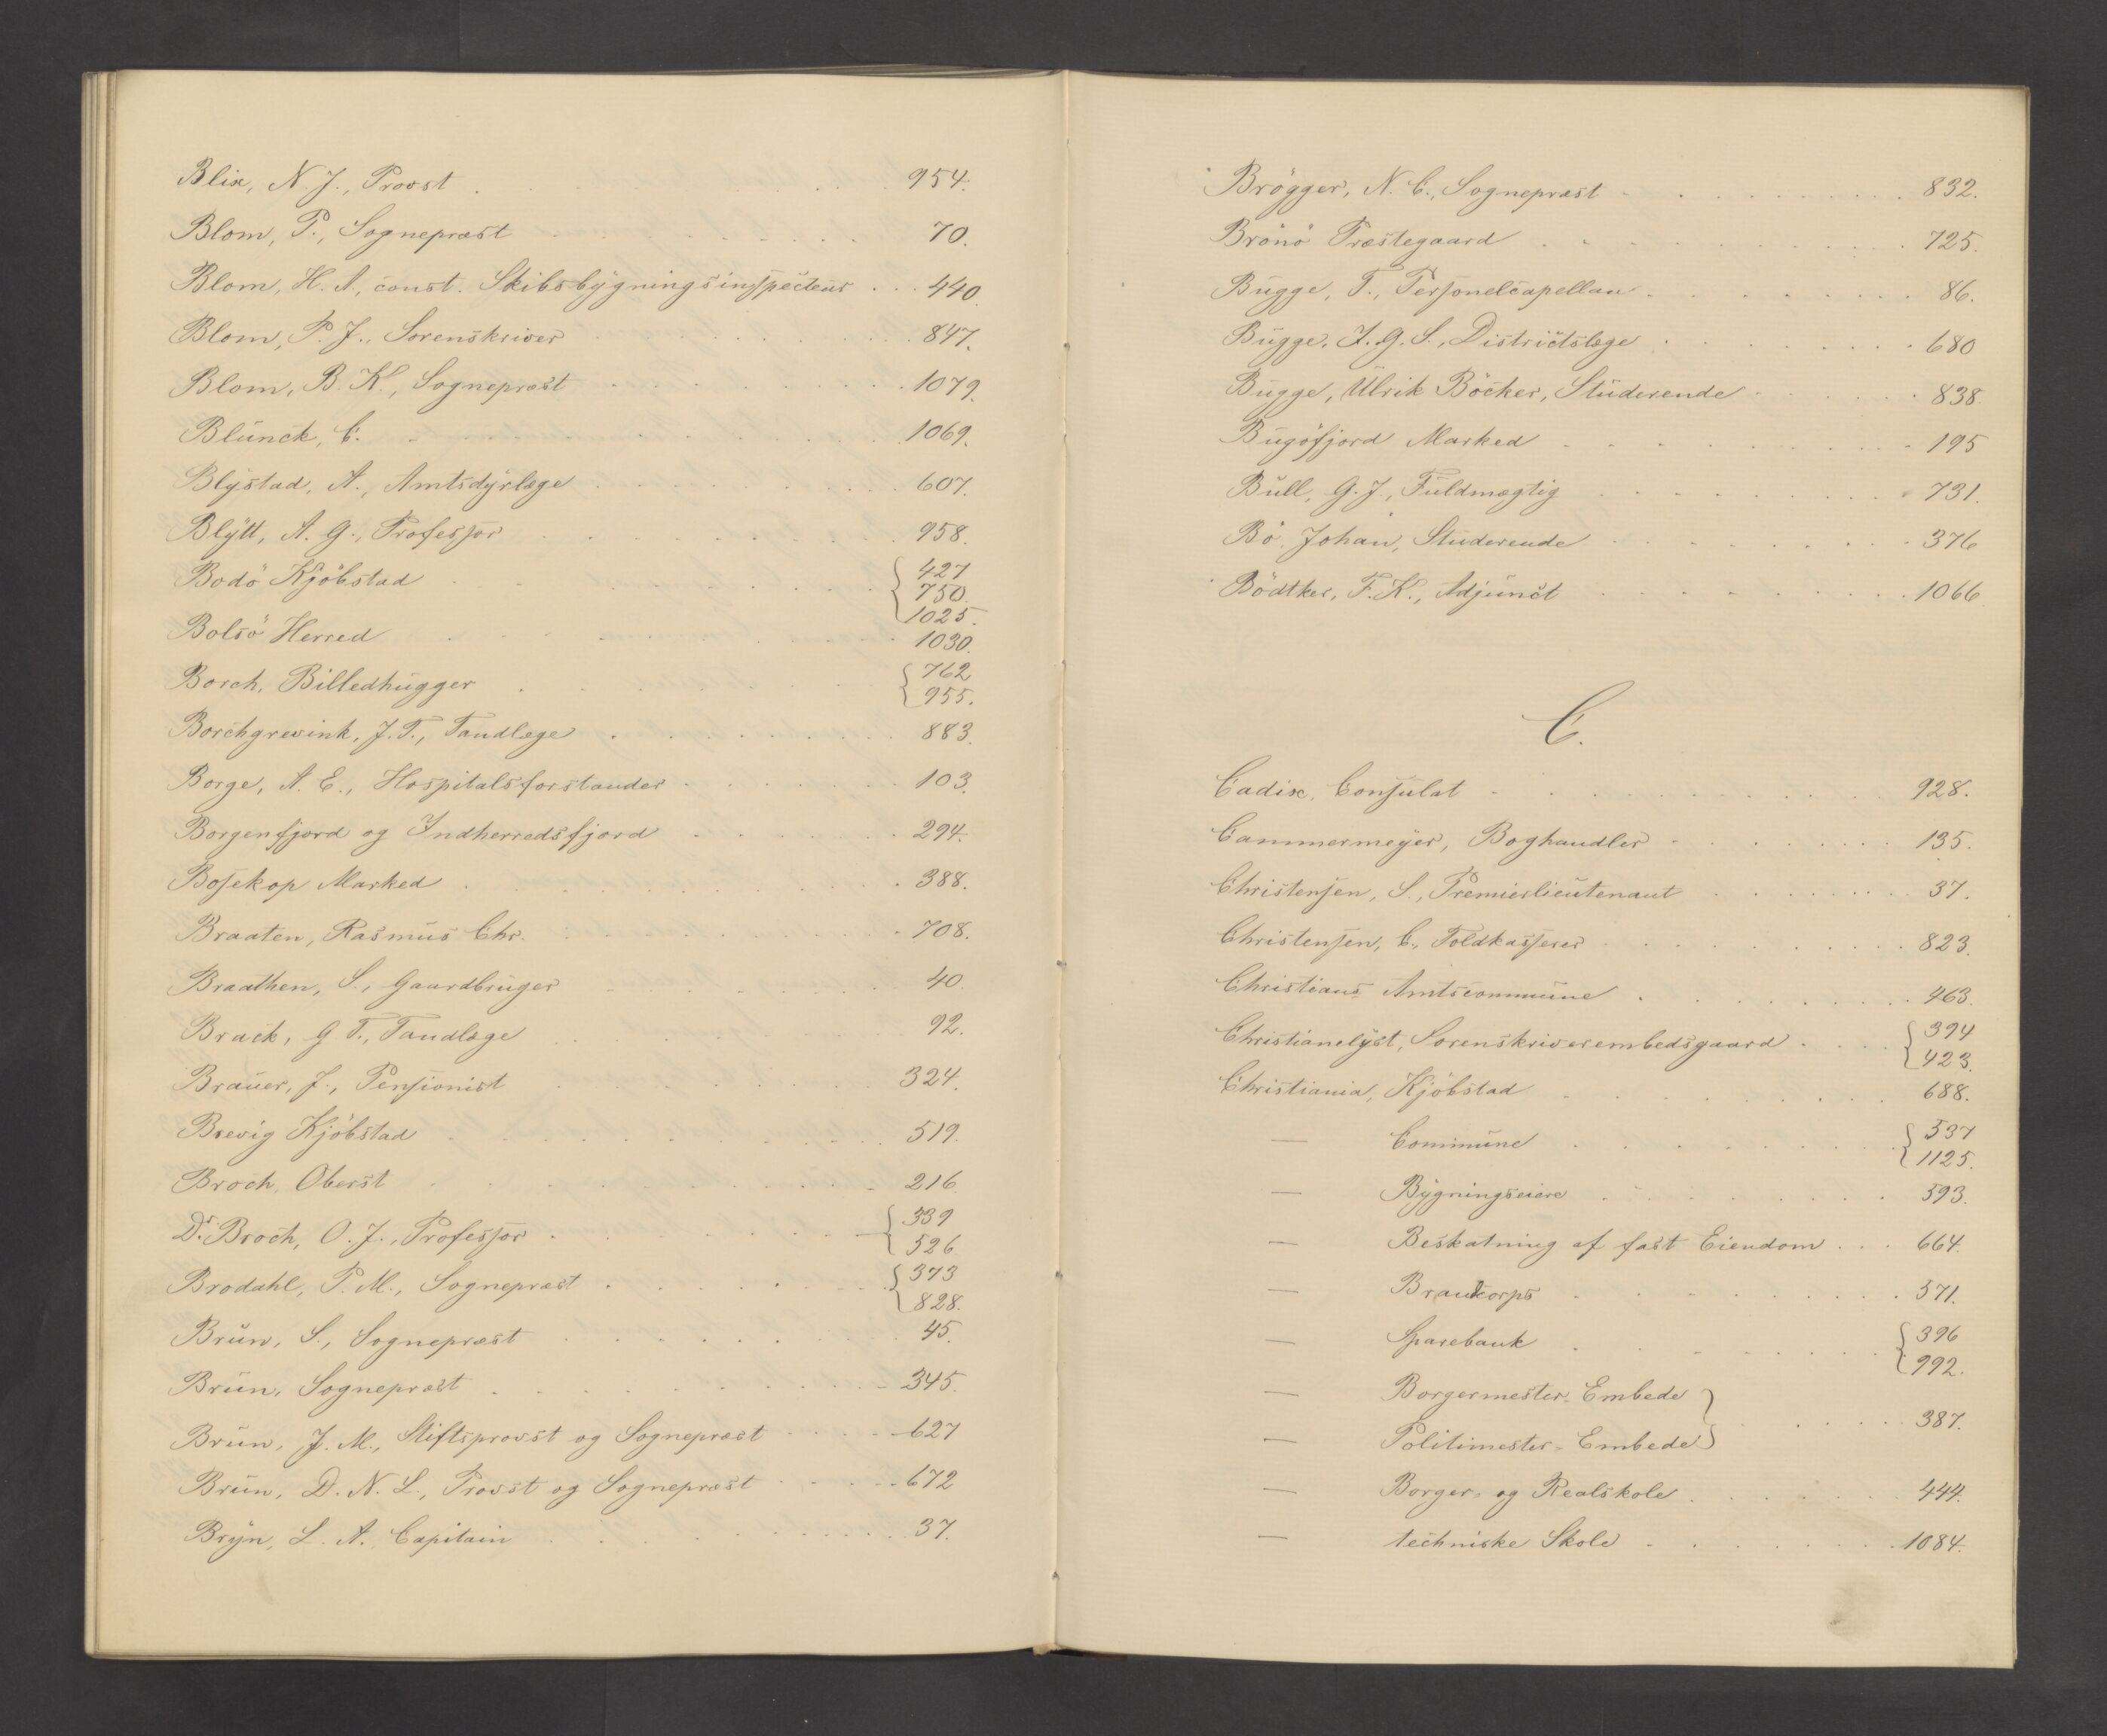 Blix, N. J., Provst . . . 954.
Blom, P., Sognepræst . . . 70.
Blom, H. A., const. Skibsbygningsinspecteur . . . 440.
Blom, P. J., Sorenskriver . . . 847.
Blom, B. K., Sognepræst . . . 1079.
Blunck, C. . . . 1069.
Blystad, A., Amtsdyrlæge . . . 607.
Blytt, A. G., Professor . . . 958.
Bodö Kjöbstad . . . { 427
750.
1025.
Bolsö Herred . . . 1030.
Borch, Billedhugger . . . { 762
955.
Borchgrevink, J. T., Tandlæge . . . 883.
Borge, A. E., Hospitalsforstander . . . 103.
Borgenfjord og Indherredsfjord . . . 294.
Bosekop Marked . . . 388.
Braaten, Rasmus Chr. . . . 708.
Braathen, S., Gaardbruger . . . 40.
Brack, G. T., Tandlæge . . . 92.
Brauer, J., Pensionist . . . 324.
Brevig Kjöbstad . . . 519.
Broch, Oberst . . . 216
Dr. Broch, O. J., Professor . . . { 339
526
Brodahl, P. M., Sognepræst . . . { 373
828.
Brun, S., Sognepræst . . . 45.
Brun, Sognepræst . . . 345.
Brun, J. M., Stiftsprovst og Sognepræst . . . 627
Brun, D. N. L., Provst og Sognepræst . . . 672
Bryn, L. A. Capitain . . . 37.
Brögger, N. C., Sognepræst . . . 832.
Brönö Præstegaard . . . 725.
Bugge, T., Personelcapellan . . . 86.
Bugge, J. G. S., Districtslæge . . . 680
Bugge, Ulrik Böcker, Studerende . . . 838
Bugöfjord Marked . . . 195
Bull, G. J., Fuldmægtig . . . 731.
Bö, Johan, Studerende . . . 376
Bödtker, F. K., Adjunct . . . 1066
C.
Cadix, Consulat . . . 928.
Cammermeyer, Boghandler . . . 135.
Christensen, S., Premierlieutenant . . . 37.
Christensen, C., Toldkasserer . . . 823.
Christians Amtscommune . . . 463.
Christianelyst, Sorenskriverembedsgaard . . . { 394
423.
Christiania, Kjöbstad . . . 688.
— Commune . . . { 537
1125.
— Bygningseiere . . . 593.
— Beskatning af fast Eiendom . . . 664.
— Brandkorps . . . 571.
— Sparebank . . . { 396
992.
— Borgermester-Embede }
— Politimester-Embede } . . . 387.
— Borger- og Realskole . . . 444.
— techniske Skole . . . 1084.